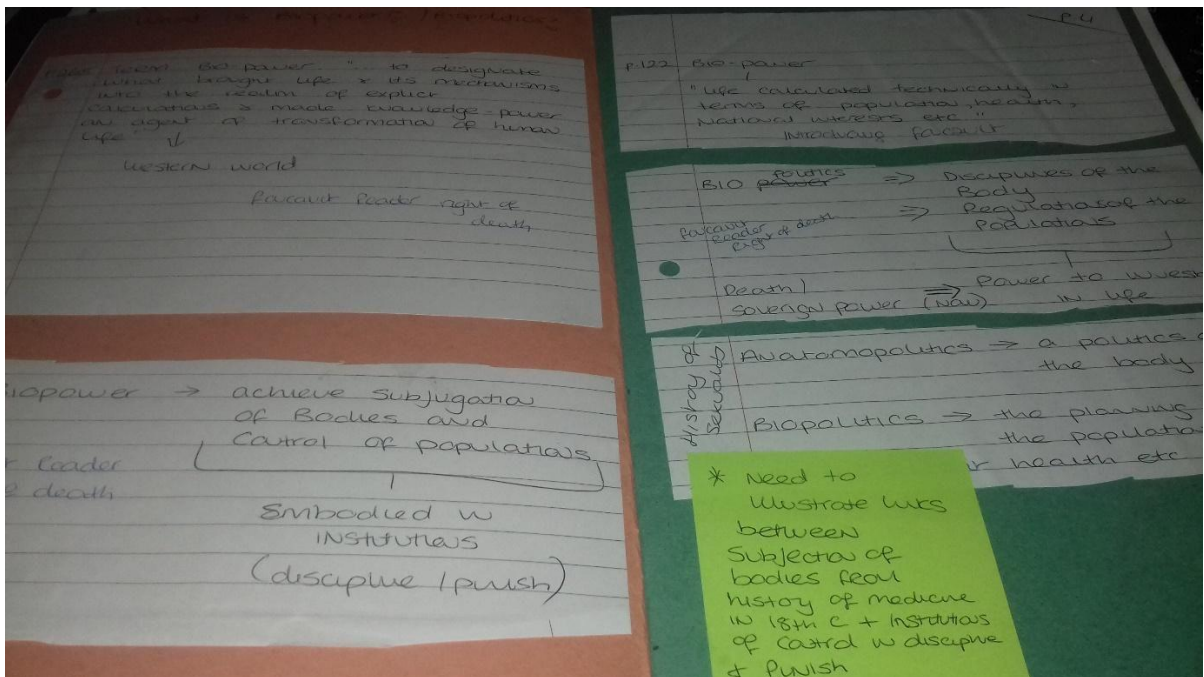 What is Biopower / Biopolitics?
term Bio-power "... to designate
what brought life & its mechanisms
into the realm of explicit
calculations & made knowledge-power
an agent of transformation of human
life"
Western world
Foucault Reader right of
death
iopower → achieve subjugation
of Bodies and
Control of populations
Reader
death
Embodied in
institutions
(discipline / punish)
P.4
P.122 Bio-power
"Life calculated technically in
terms of population, health,
National interests etc"
Introducing Foucault
Bio power politics ⇒ Disciplines of the
Body
⇒ Regulations of the
Populations
Foucault
Reader
right of death
Death /
Soverign power (Now) ⇒ Power to invest
in life
Histroy of
Sexuality
Anatamopolitics → a politics
the body
Biopolitics → the planning
the populatio
health etc
* Need to
illustrate links
between
Subjection of
bodies from
history of medicine
in 18th C + institutions
of control in discipline
+ Punish